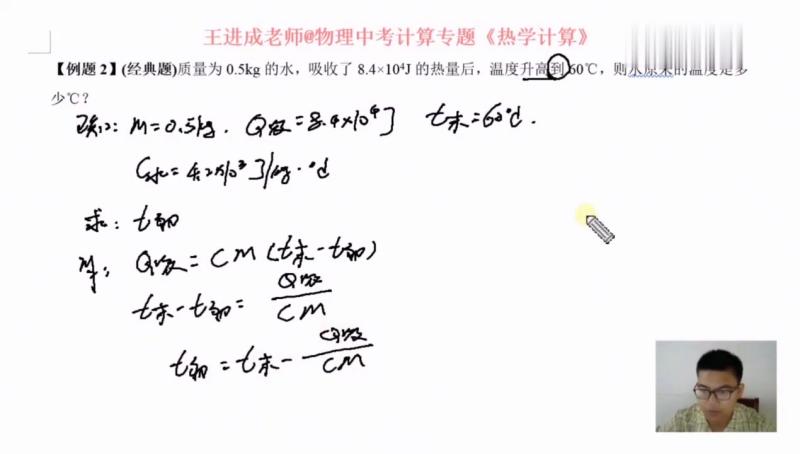 王进成老师@物理中考计算专题《热学计算》
【例题2】(经典题)质量为0.5kg的水，吸收了8.4×10⁴J的热量后，温度升高到60℃，则水原来的温度是多
少℃？
已知：m=0.5kg. Q吸=8.4×10⁴J t末=60℃.
C水=4.2×10³J/kg·℃
求：t初
解：Q吸=Cm(t末-t初)
t末-t初=Q吸/Cm
t初=t末-Q吸/Cm